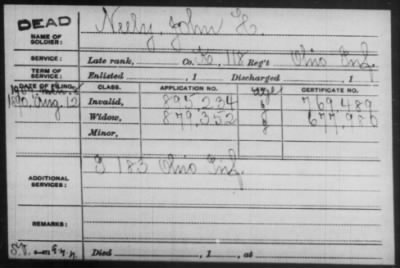 DEAD
NAME OF SOLDIER: Neely, John H.
SERVICE: Late rank, Co. K, 118 Reg't Ohio Inf.
TERM OF SERVICE: Enlisted , 1 Discharged , 1
DATE OF FILING. CLASS. APPLICATION NO. CERTIFICATE NO.
1890, Aug. 12 Invalid, 895,234 769,489
Widow, 879,352 677,980
Minor,
ADDITIONAL SERVICES: G 183 Ohio Inf.
REMARKS:
Died , 1 , at